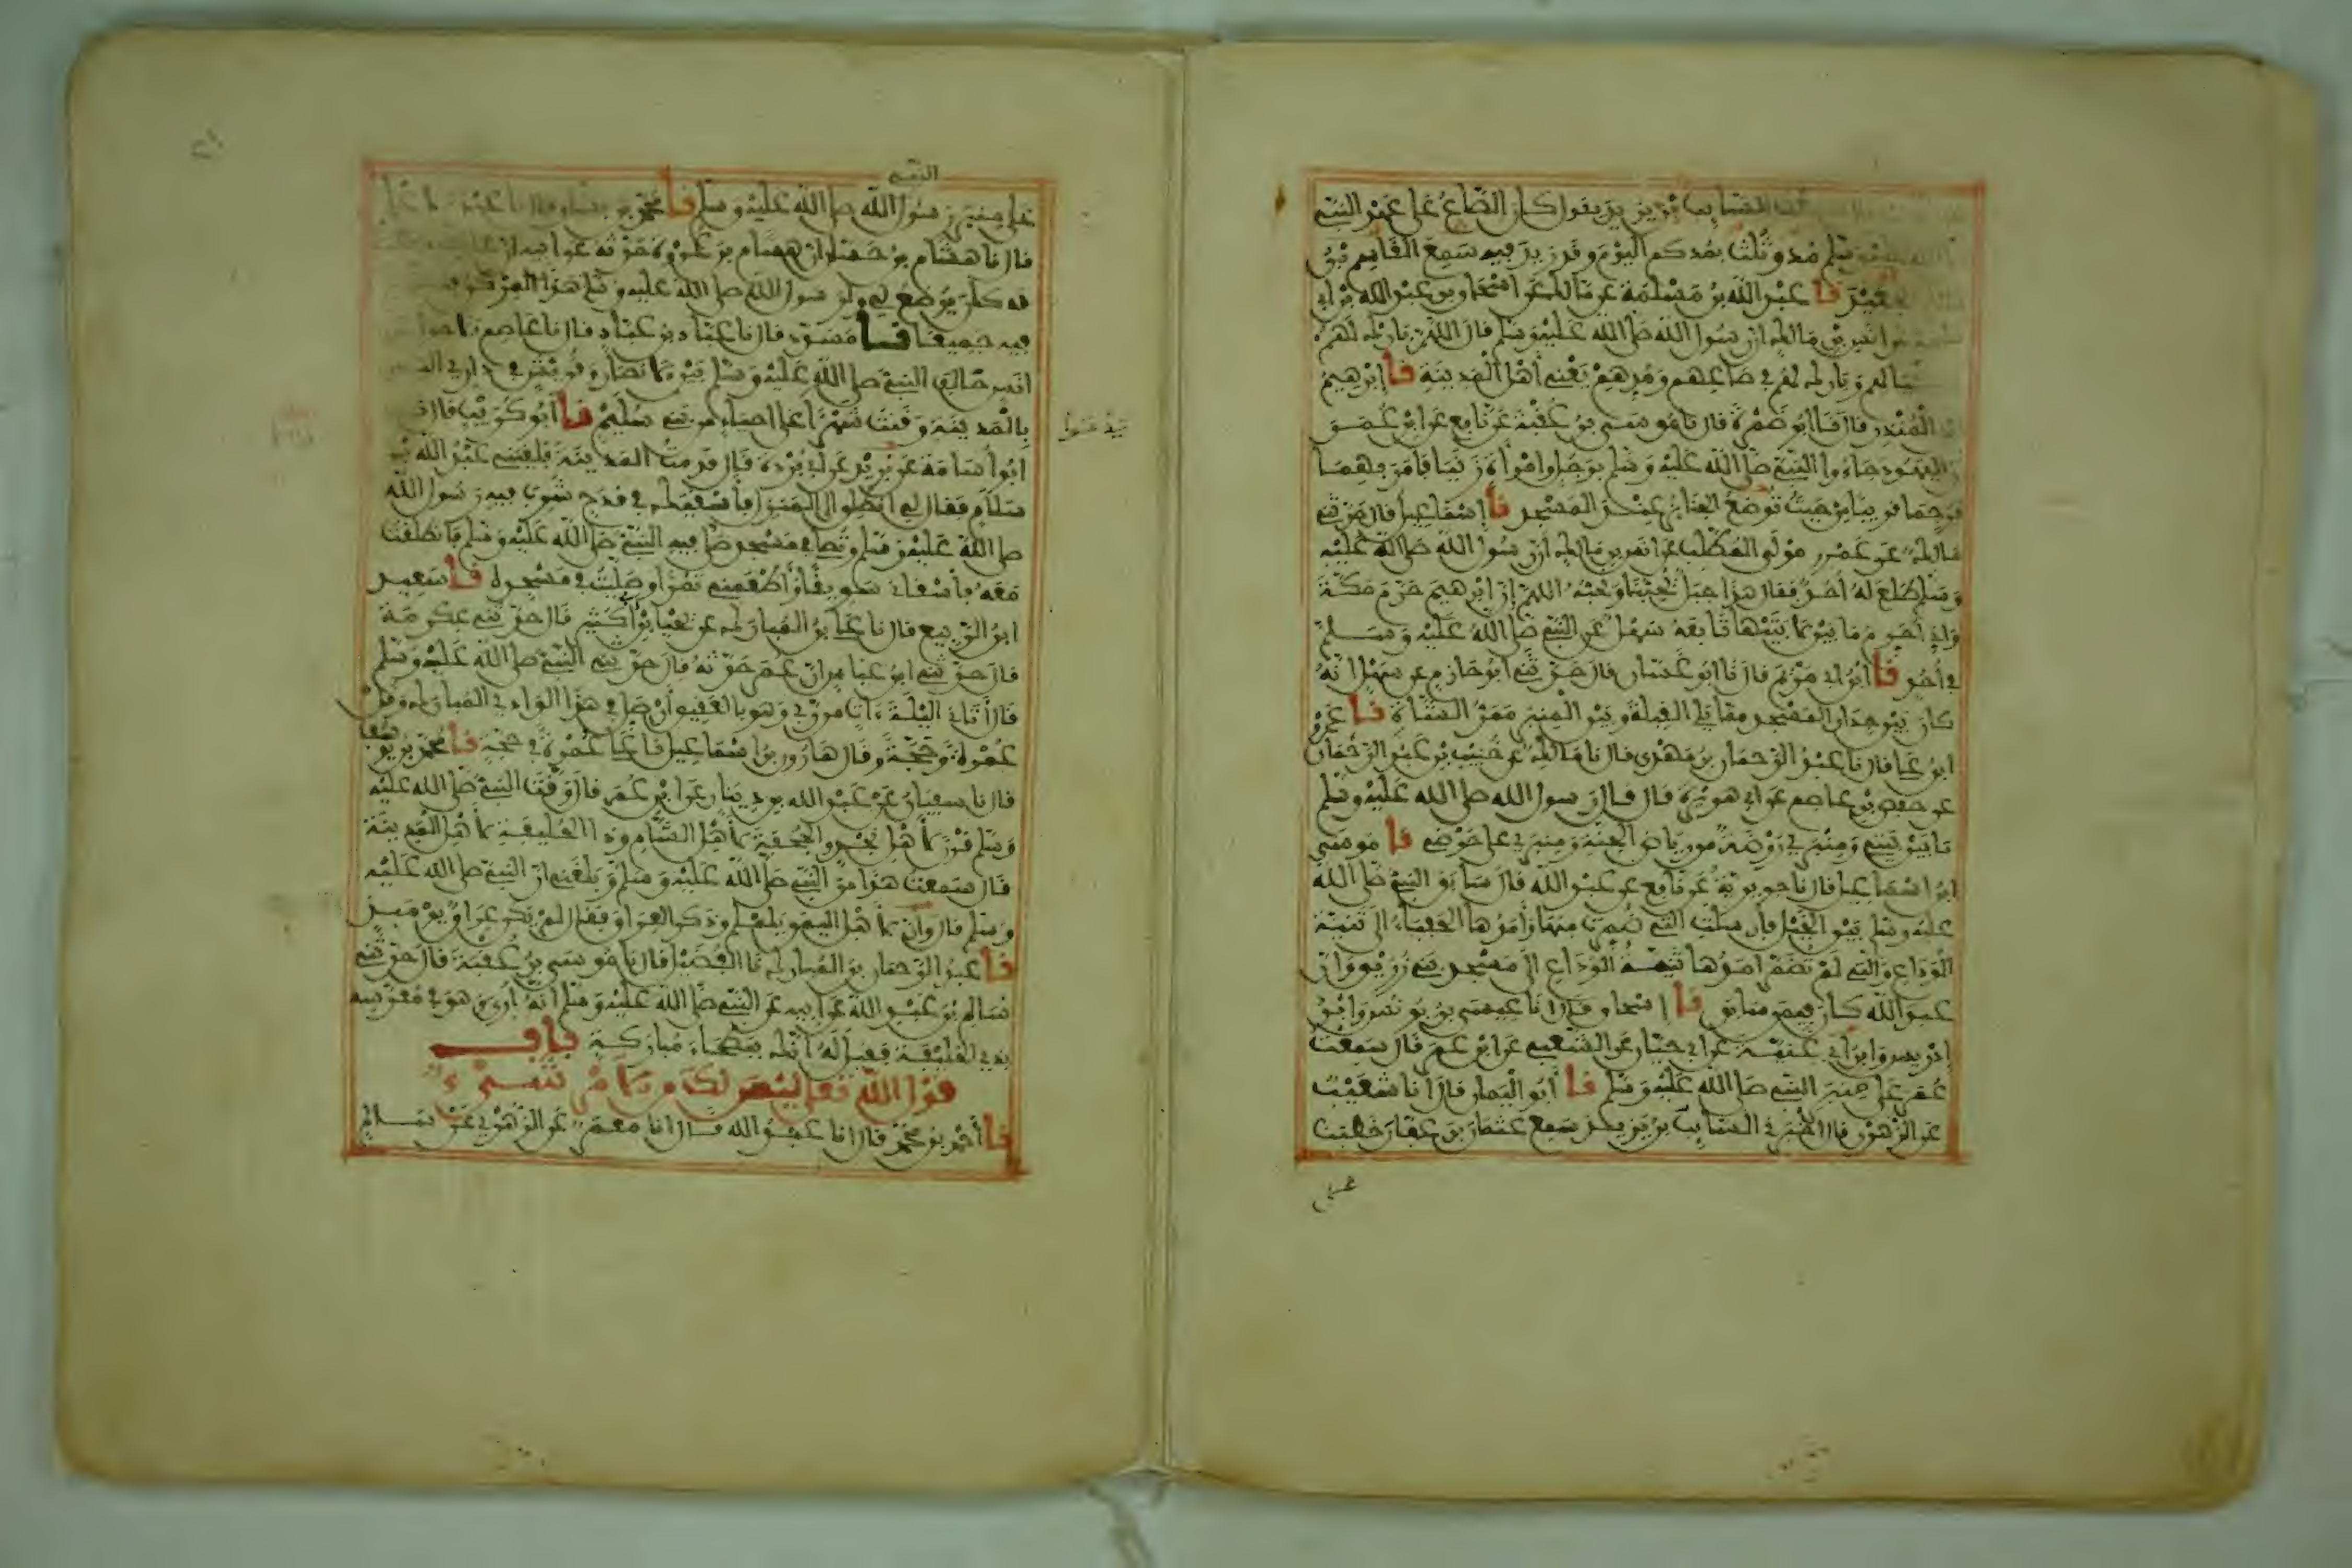 السايب بن يزيد يقول كان الصاع على عهد النبي
وسلم مد وثلث بمدكم اليوم وقد زيد فيه سمع القاسم بن
نا عبد الله بن مسلمة عن مالك عن اسحاق بن عبد الله بن ابي
انس بن مالك ان رسول الله صلى الله عليه وسلم قال اللهم بارك لهم
وبارك لهم في صاعهم ومدهم يعني أهل المدينة نا إبرهيم
المنذر قال نا ابو ضمرة قال نا موسى بن عقبة عن نافع عن ابن عمر
اليهود جاءوا النبي صلى الله عليه وسلم برجل وامرأة زنيا فامر بهما
فرجما قريبا من حيث توضع الجنايز عند المسجد نا إسماعيل قال حدثني
مالك عن عمرو مولى المطلب عن انس بن مالك ان رسول الله صلى الله عليه
وسلم طلع له احد فقال هذا جبل يحبنا ونحبه اللهم إن إبرهيم حرم مكة
واني أحرم ما بين لابتيها تابعه سهل عن النبي صلى الله عليه وسلم
في أحد نا ابن ابي مريم قال نا ابو غسان قال حدثني ابو حازم عن سهل انه
كان بين جدار المسجد مما يلي القبلة وبين المنبر ممر الشاة نا عمرو
ابن علي قال نا عبد الرحمان بن مهدي قال نا مالك عن خبيب بن عبد الرحمان
عن حفص بن عاصم عن ابي هريرة قال قال رسول الله صلى الله عليه وسلم
ما بين بيتي ومنبري روضة من رياض الجنة ومنبري على حوضي نا موسى
ابن اسماعيل قال نا جويرية عن نافع عن عبد الله قال سابق النبي صلى الله
عليه وسلم بين الخيل فأرسلت التي ضمرت منها وأمدها الحفياء الى ثنية
الوداع والتي لم تضمر امدها ثنية الوداع الى مسجد بني زريق وان
عبد الله كان فيمن سابق نا إسحاق قال انا عيسى بن يونس وابن
ادريس وابن ابي غنية عن ابي حيان عن الشعبي عن ابن عمر قال سمعت
عمر على منبر النبي صلى الله عليه وسلم نا أبو اليمان قال أنا شعيب
عن الزهري قال اخبرني السايب بن يزيد سمع عثمان بن عفان خطيبا
على
النبي
على منبر رسول الله صلى الله عليه وسلم نا محمد بن بشار قال نا عبد الاعلى
قال نا هشام بن حسان ان هشام بن عروة حدثه عن ابيه ان
كان يوضع لي ولرسول الله صلى الله عليه وسلم هذا المركن
فيه جميعا نا مسدد قال نا عباد بن عباد قال نا عاصم
انس حالف النبي صلى الله عليه وسلم بين الانصار وقريش في داري التي
بالمدينة وقنت شهرا على احياء من بني سليم نا أبو كريب قال
ابو أسامة عن بريد عن أبي بردة قال قدمت المدينة فلقيني عبد الله بن
سلام فقال لي انطلق الى المنزل فأسقيك في قدح شرب فيه رسول الله
صلى الله عليه وسلم وتصلي في مسجد صلى فيه النبي صلى الله عليه وسلم فانطلقت
معه فأسقاني سويقا وأطعمني تمرا وصليت في مسجده نا سعيد
ابن الربيع قال نا علي بن المبارك عن يحيا بن أبي كثير قال حدثني عكرمة
قال حدثني ابن عباس ان عمر حدثه قال حدثني النبي صلى الله عليه وسلم
قال أتاني الليلة ءات من ربي وهو بالعقيق أن صل في هذا الوادي المبارك وقل
عمرة وحجة وقال هارون بن اسماعيل نا علي عمرة في حجة نا محمد بن يوسف
قال نا سفيان عن عبد الله بن دينار عن ابن عمر قال وقت النبي صلى الله عليه
وسلم قرن لأهل نجد والجحفة لأهل الشام وذا الحليفة لأهل المدينة
قال سمعت هذا من النبي صلى الله عليه وسلم وبلغني ان النبي صلى الله عليه
وسلم قال وان لأهل اليمن يلملم وذكر العراق فقال لم يكن عراق يوميذ
نا عبد الرحمان بن المبارك نا الفضيل قال نا موسى بن عقبة قال حدثني
سالم بن عبد الله عن ابيه عن النبي صلى الله عليه وسلم انه أري وهو في معرسه
بذي الحليفة فقيل له انك ببطحاء مباركة باب
قول الله تعلى ليس لك من الامر شيء
نا أحمد بن محمد قال انا عبد الله قال انا معمر عن الزهري عن سالم